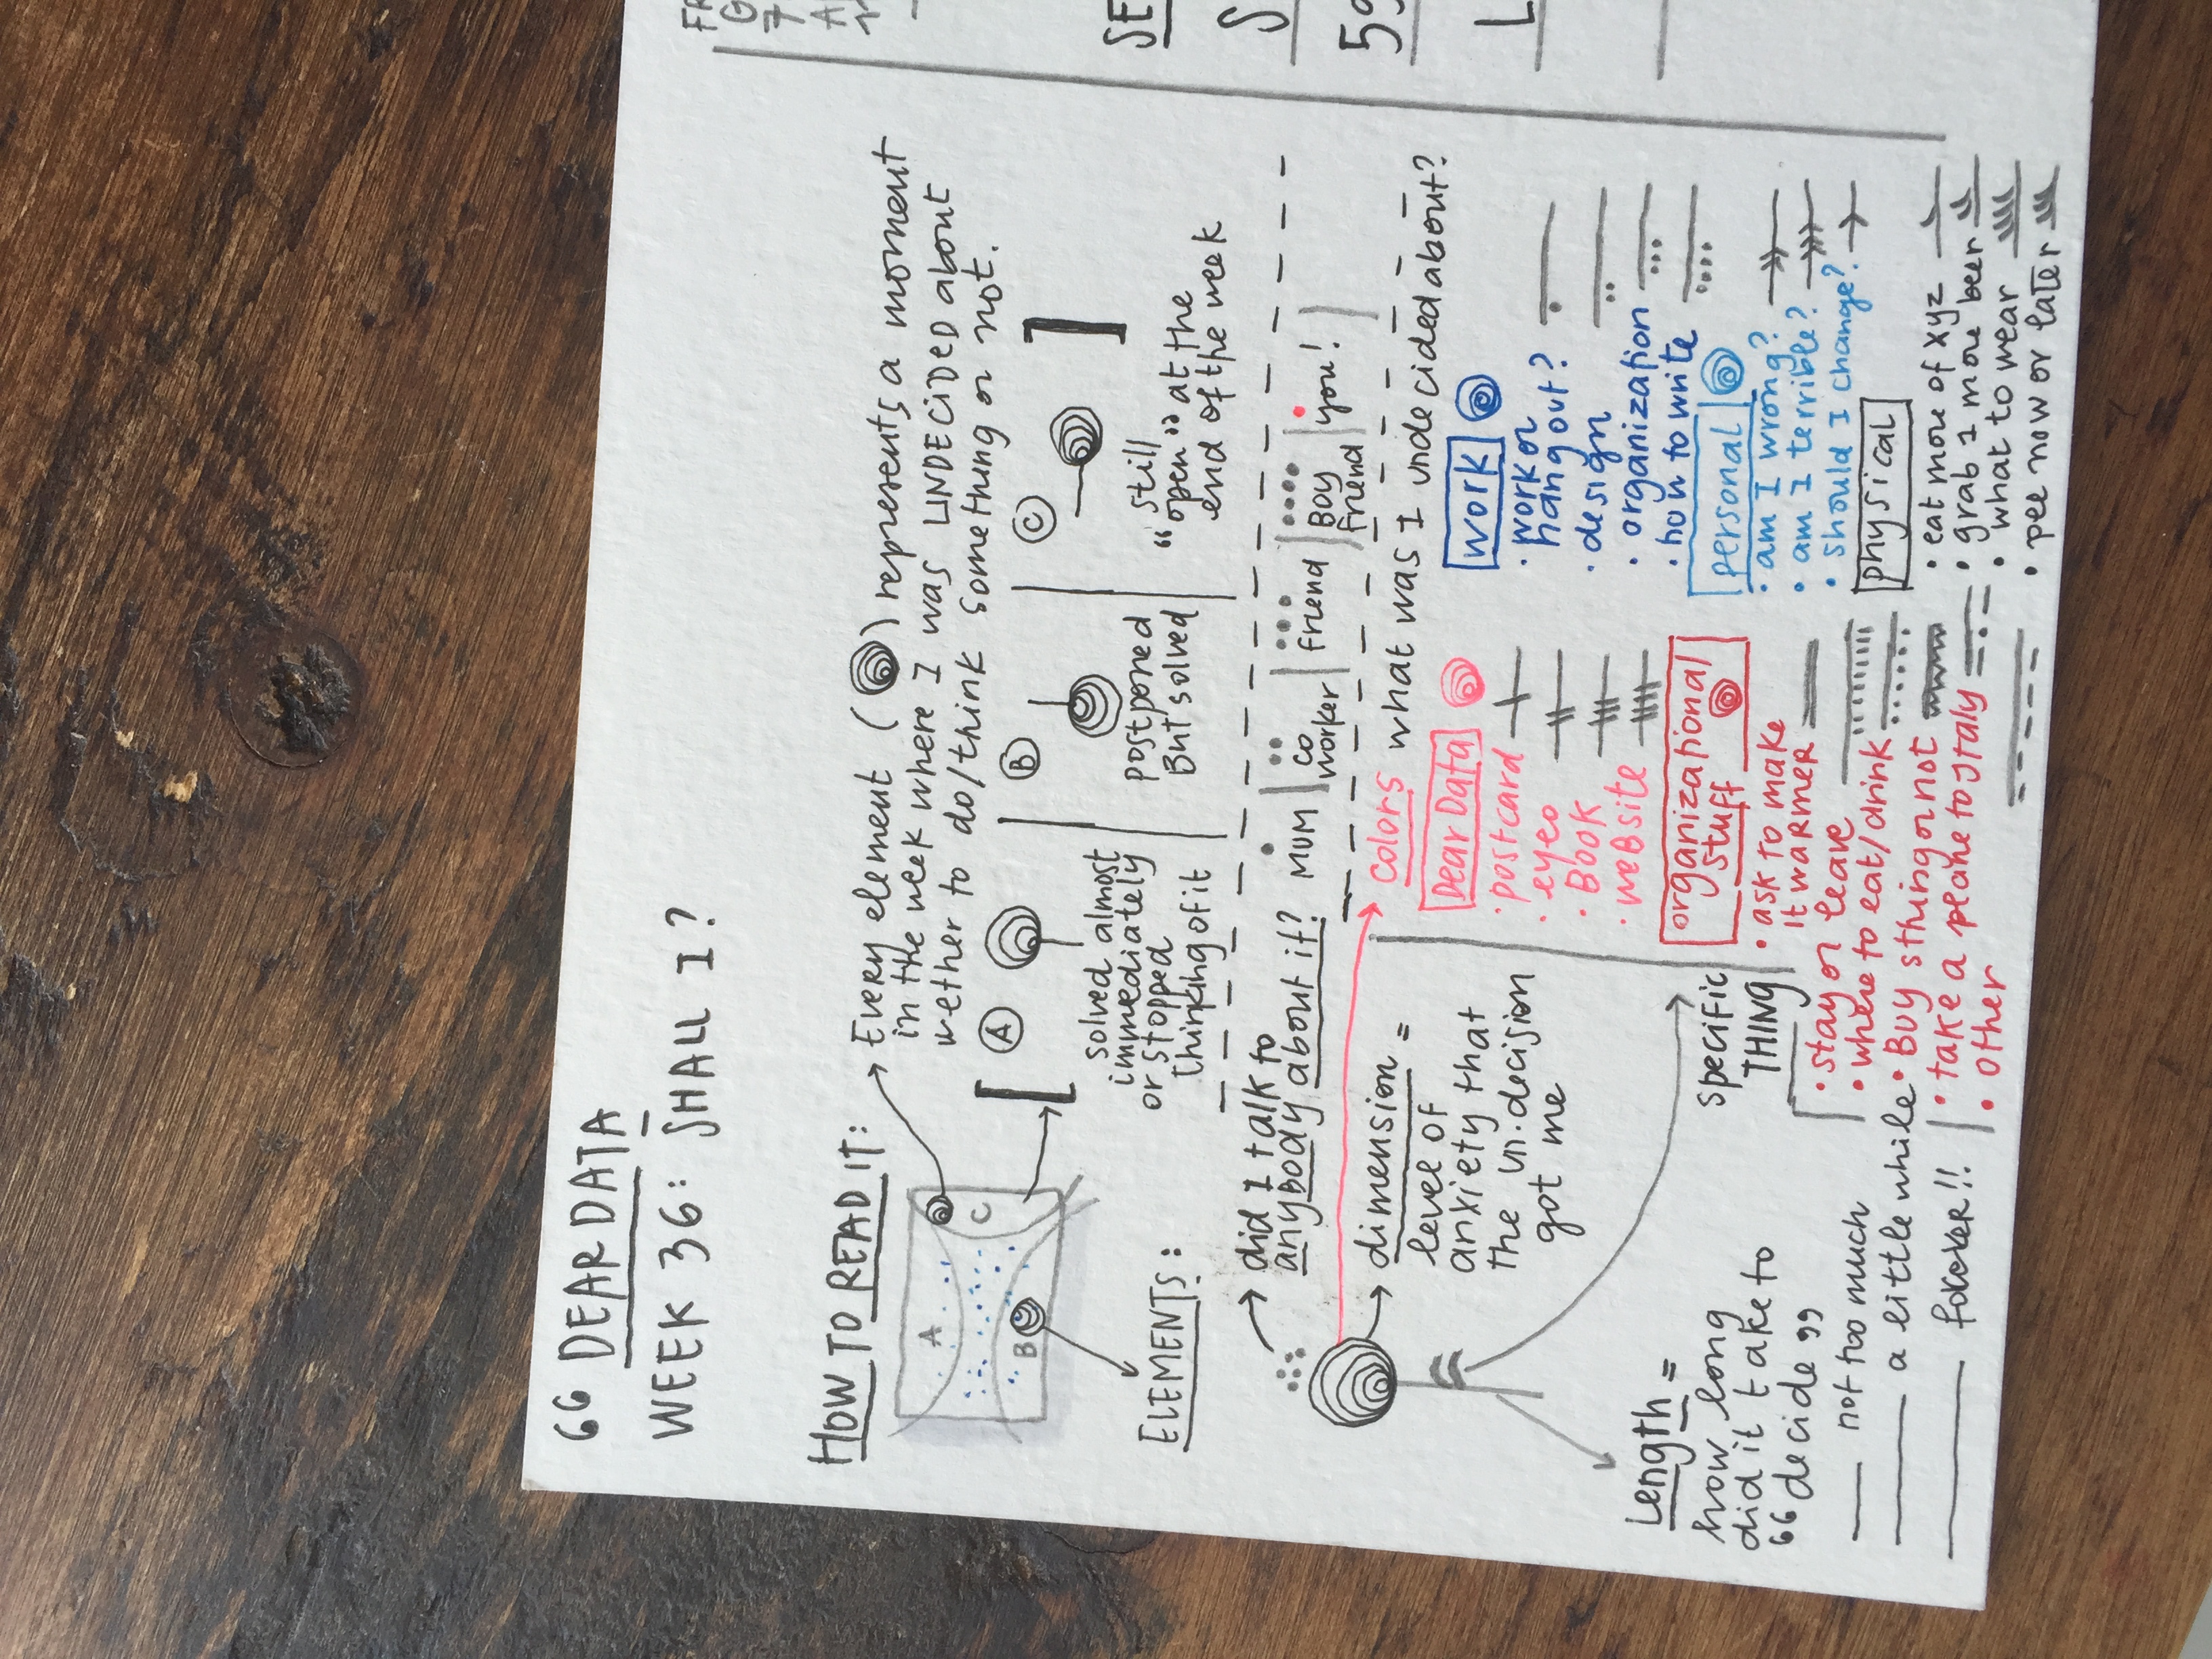 66 DEAR DATA
WEEK 36: SHALL I?
HOW TO READ IT:
A
B
C
Every element ( ) represents a moment
in the week where I was UNDECIDED about
wether to do/think something or not.
A
solved almost
immediately
or stopped
thinking of it
B
postponed
But solved
C
still
"open" at the
end of the week
ELEMENTS:
did I talk to
anybody about it?
MUM
co
worker
friend
Boy
friend
you!
dimension =
level of
anxiety that
the un.decision
got me
Length =
how long
did it take to
"decide"
not too much
a little while
specific
THING
colors
what was I undecided about?
Dear Data
· postcard
· eyeo
· Book
· website
organizational
stuff
· ask to make
it warmer
· stay or leave
· where to eat/drink
· Buy s thing or not
· take a plane to Italy
· other
work
· work or
hangout?
· design
· organization
· how to write
personal
· am I wrong?
· am I terrible?
· should I change?
physical
· eat more of xyz
· grab 1 more beer
· what to wear
· pee now or later
FR
G
7
A
SE
S
59
L